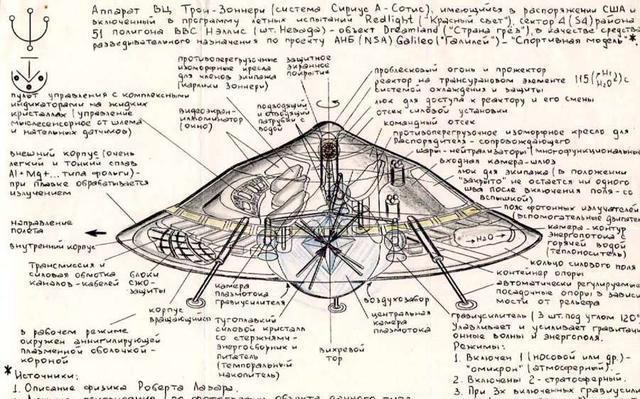 Аппарат ВЦ Трон-Зоннери (система Сириус А-Сотис), имеющийся в распоряжении США и
включенный в программу летных испытаний Redlight ("Красный свет"), сектор 4 (S4) района
51 полигона ВВС Нэллис (шт. Невада) - объект Dreamland ("Страна грёз"), в качестве средства
разведывательного назначения по проекту АНБ (NSA) Galileo ("Галилей") - "Спортивная модель"*
противоперегрузочные
изоморные кресла
для членов экипажа
(карлики Зоннери)
защитное
экранное
покрытие
проблесковый огонь и прожектор
реактор на трансурановом элементе 115
системой охлаждения и защиты
люк для доступа к реактору и его смены
отсек силовой установки
командный отсек
противоперегрузочное изоморное кресло для
Распорядителя - сопровождающего
шары-нейтрализаторы (многофункциональные)
входная камера-шлюз
люк для экипажа (в положении
"закрыто" не остается ни одного
шва после включения поля - со
вспышкой)
пояс фотонных излучателей
(вспомогательные двигатели
камера - контур
энергопотока
горячей воды
(теплоноситель)
кольцо силового поля
контейнер опоры
автоматически регулируемые
посадочные опоры в зависи-
мости от рельефа
гравиусилитель (3 шт. под углом 120°
Улавливает и усиливает гравитаци-
онные волны и энергополя.
Режимы:
1. Включен 1 (носовой или др.)-
"омикрон" (атмосферный).
2. Включены 2 - стратосферный.
3. При 3х включенных гравиусили-
пульт управления с комплексными
индикаторами на жидких
кристаллах (управление
мыслесенсорное от шлема
и нательных датчиков)
видеоэкран-
иллюминатор
(окно)
подводящий
и отводящий
патрубки с
водой
внешний корпус (очень
легкий и тонкий сплав
Al+Mg+... типа фольги)-
при плавке обрабатывается
излучением
направление
полёта
внутренний корпус
Трансмиссия и
силовая обмотка
каналов-кабелей
блоки
СЖО-
защиты
корпус
вращающийся
камера
плазмотока
гравиусилителя
→H₂O→
воздухозабор
центральная
камера
плазмотока
тугоплавкий
силовой кристалл
со стержнями-
энергосборник и
питатель
(темпоральный
накопитель)
вихревой
тор
в рабочем режиме
окружен аннигилирующей
плазменной оболочкой-
короной
* Источники:
1. Описание физика Роберта Лазара.